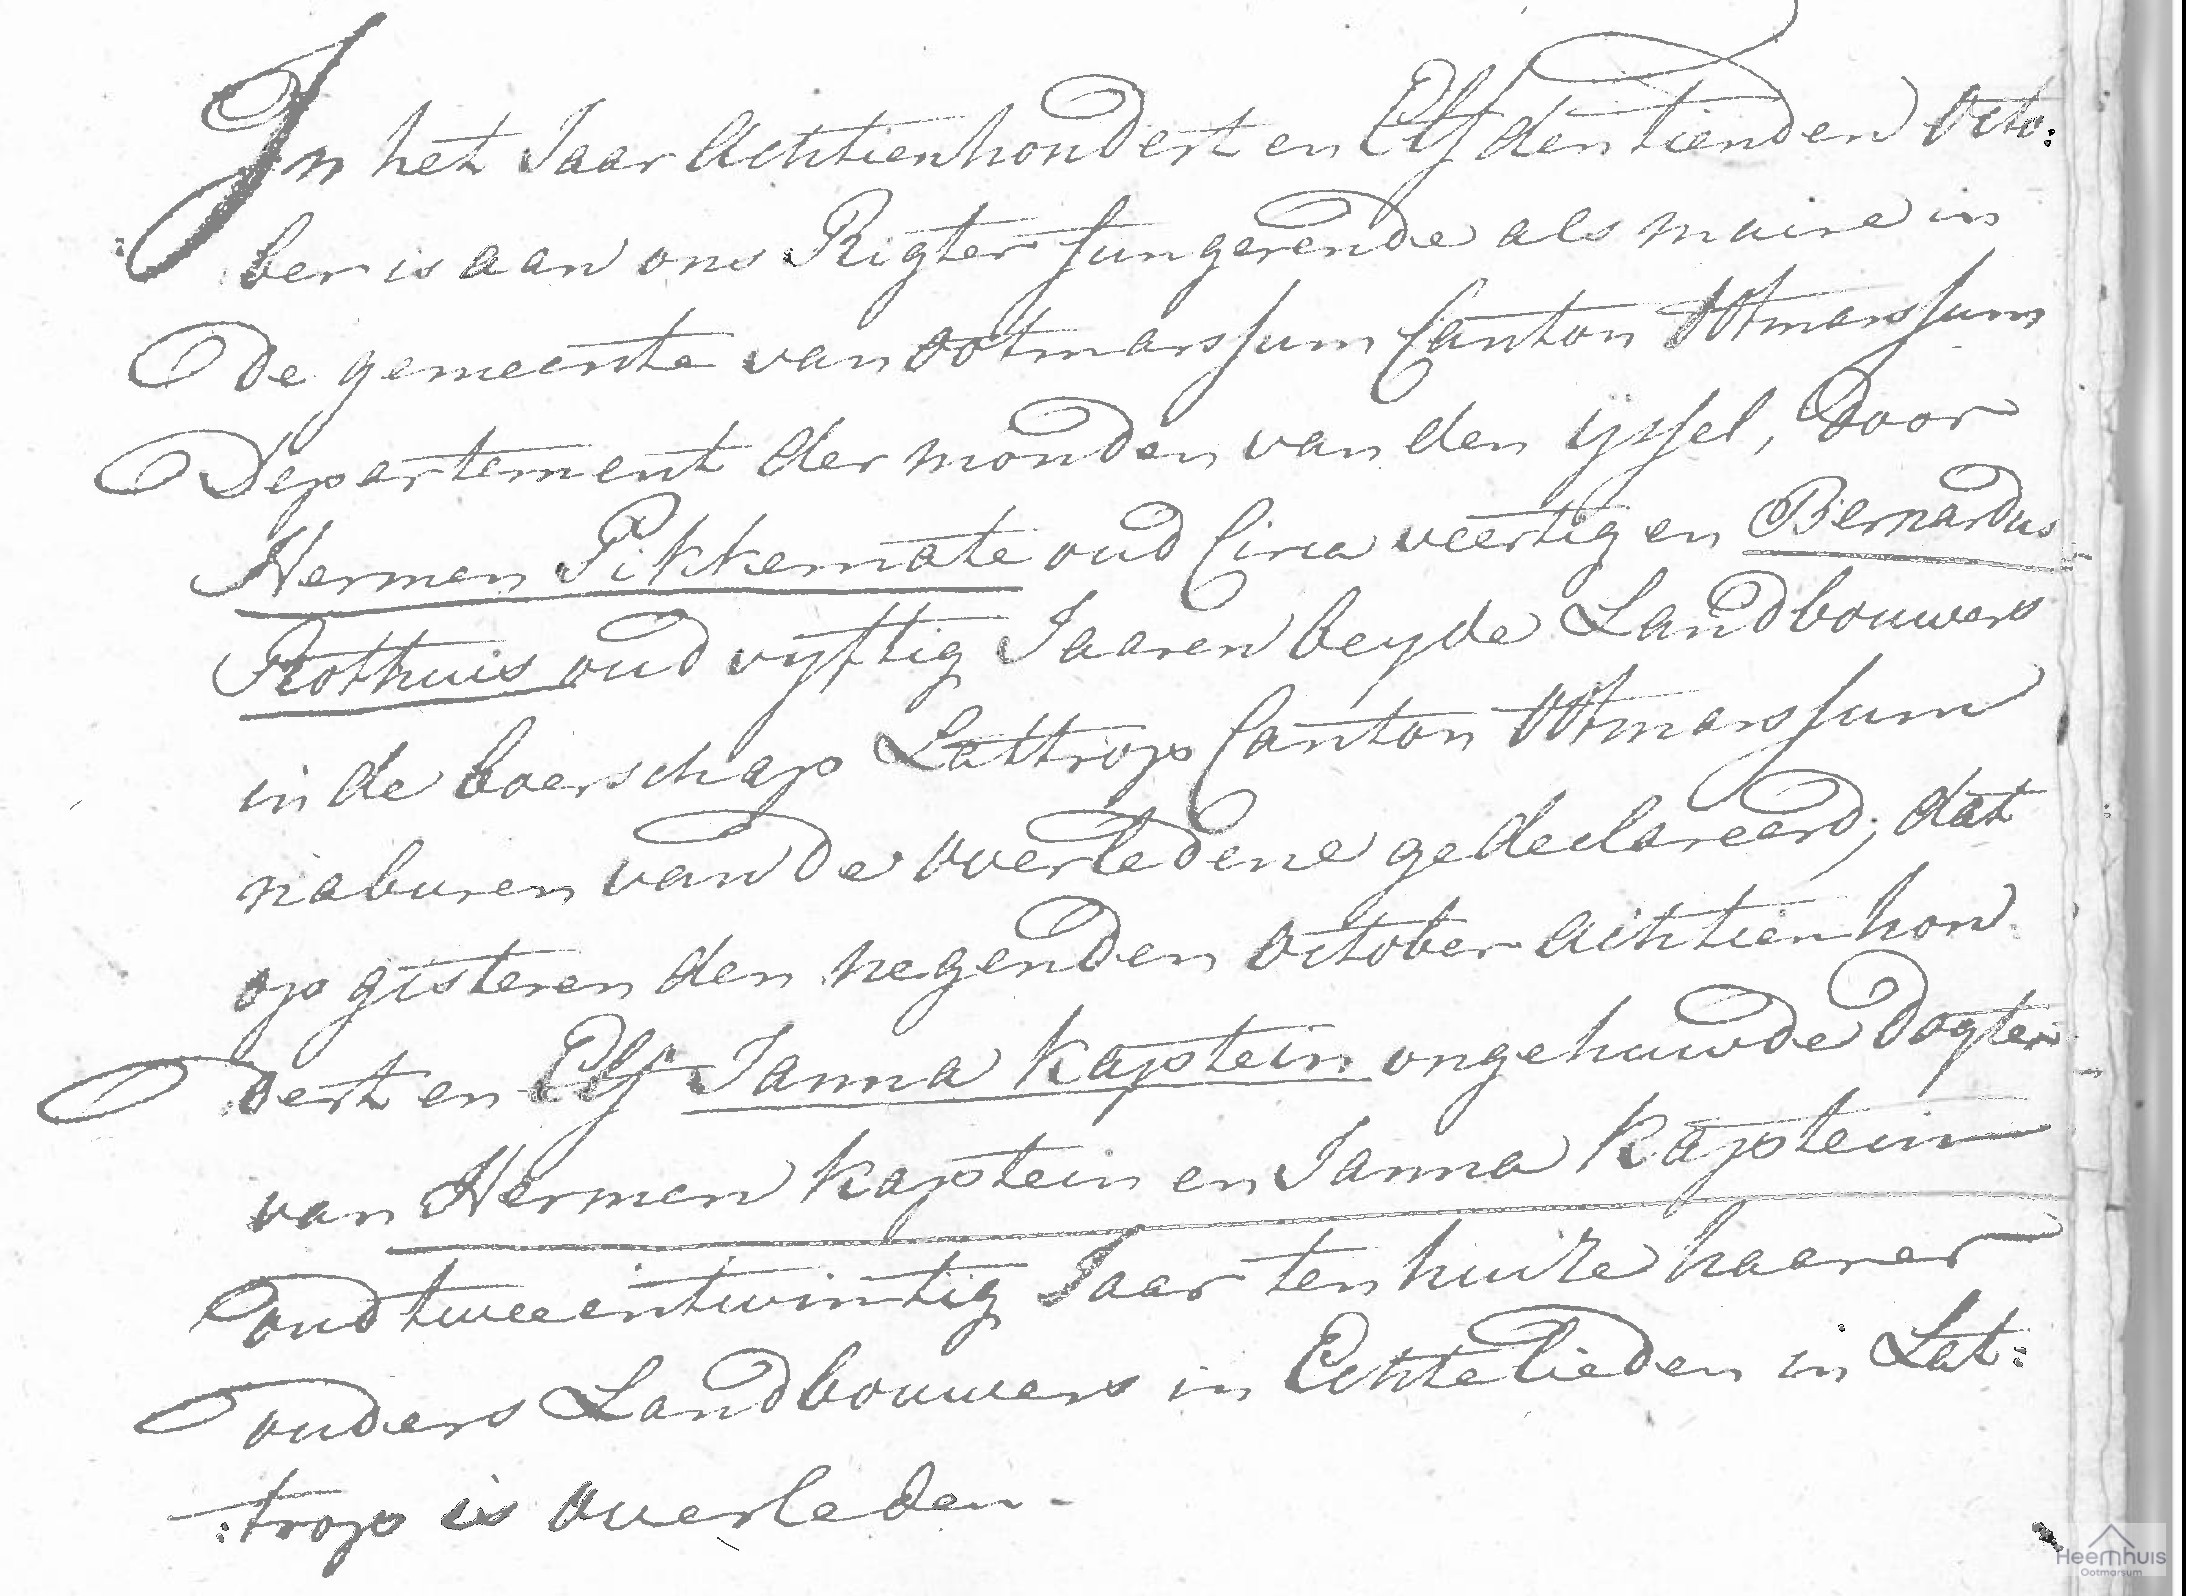 In het Jaar Achtienhondert en Elf den tienden Octo:
ber is aan ons Rigter fungerende als maire in
de gemeente van ootmarssum Canton Otmarssum
Departement der monden van den ijssel, door
Hermen Pikkemate oud Circa veertig en Bernardus
Rothuis oud vyftig Jaaren beyde Landbouwers
in de boerschap Lattrop Canton Otmarssum
naburen van de overledene gedeclareerd; dat
op gisteren den negenden October Achtienhon
dert en Elf Janna Kaptein ongehuwde Dogter
van Hermen Kaptein en Janna Kaptein
oud tweeentwintig Jaar ten huize haarer
ouders Landbouwers in Echtelieden in Lat:
:trop is overleden.-
Heemhuis
Ootmarsum